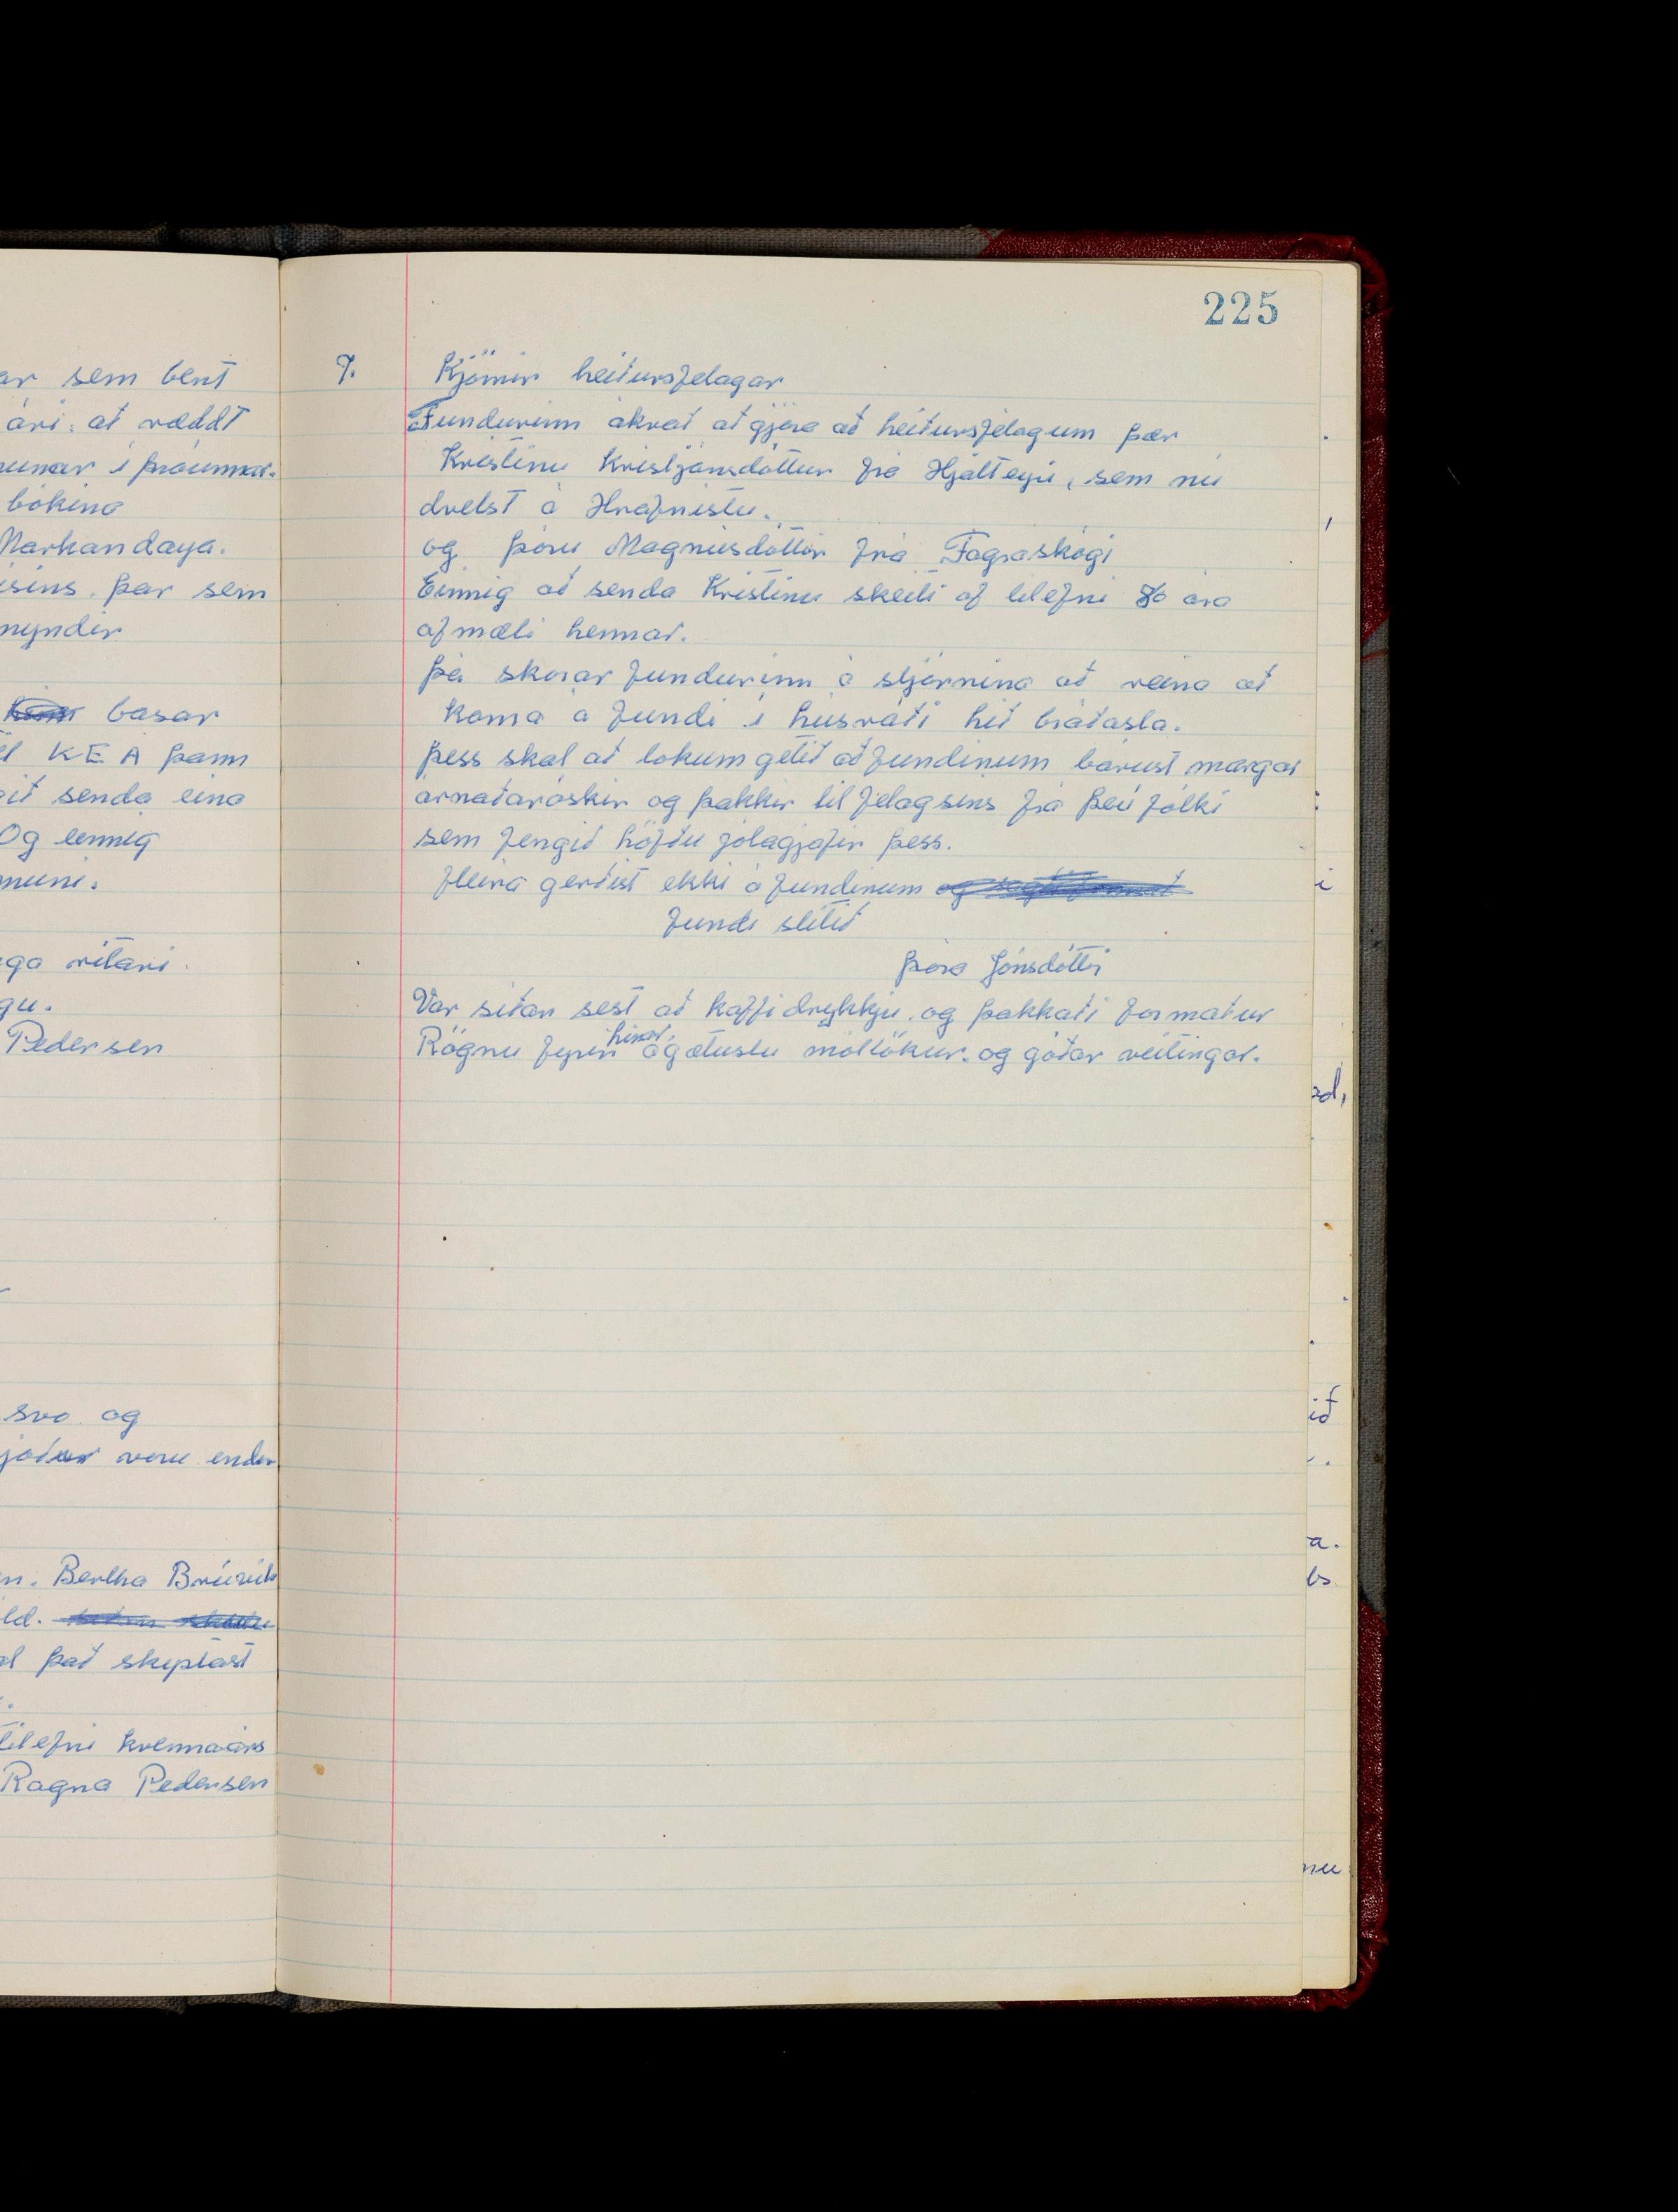 ar sem bent
ári. að ræddt
bókina
Markandaya.
þar sem
myndir
basar
KEA þann
senda eina
Og einnig
ritari.
Pedersen
svo og
voru endur
Bertha Bruvik
það skiptast
tilefni kvennaárs
Ragna Pedersen
225
7. Kjörnir heiðursfelagar
Fundurinn ákvað að gjöra að heiðursfelagum þær
Kristínu Kristjánsdóttur frá Hjalteyri, sem nú
dvelst á Hrafnistu.
og Þóru Magnúsdóttir frá Fagraskógi
Einnig að senda Kristínu skeiti af tilefni 80 ára
afmæli hennar.
Þá skorar fundurinn á stjórnina að reina að
koma á fundi í húsráði hið bráðasta.
Þess skal að lokum getið að fundinum bárust margar
árnaðaróskir og þakkir til felagsins frá því fólki
sem fengið höfðu jólagjafir þess.
Fleira gerðist ekki á fundinum
fundi slitið
Þóra Jónsdóttir
Var síðan sest að kaffidrykkju og þakkaði formaður
Rögnu fyrir hinar ágætustu móttökur og góðar veitingar.